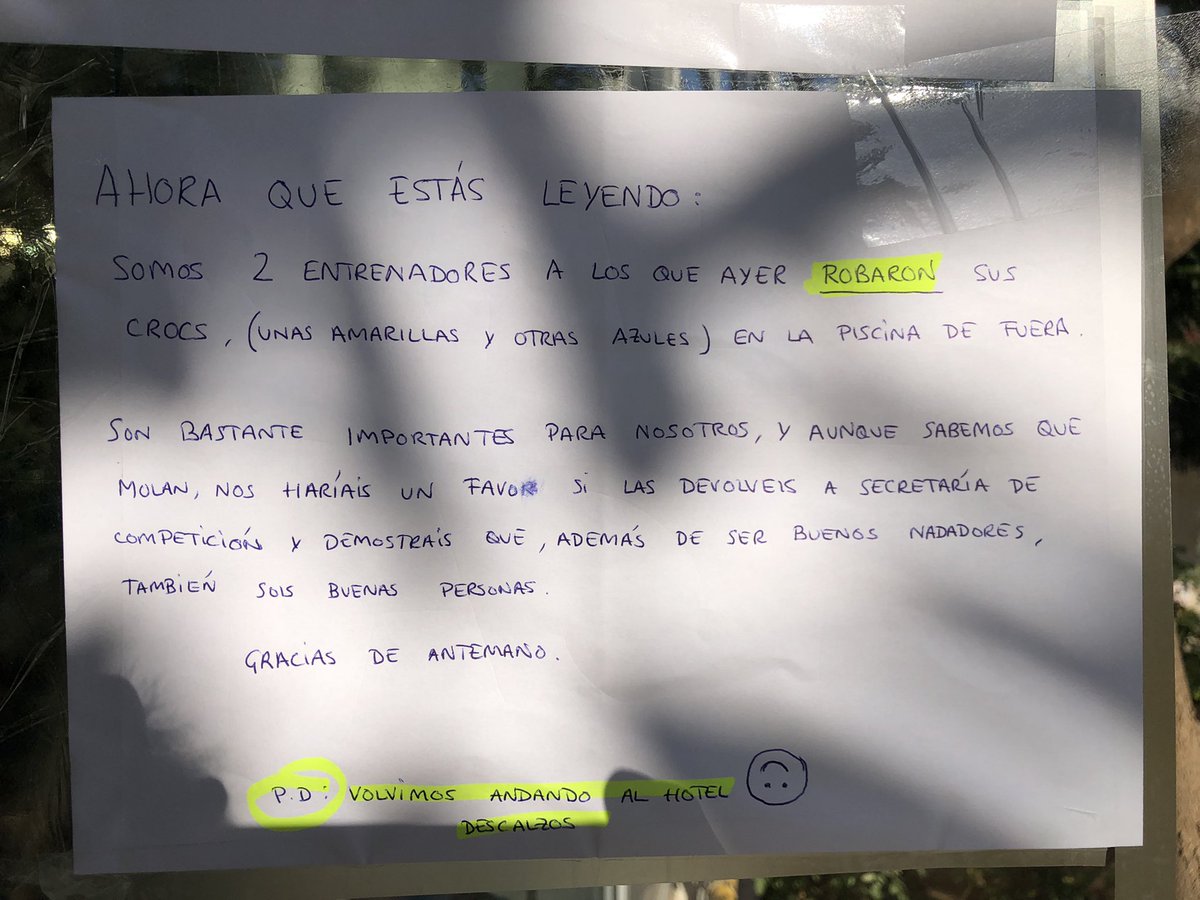 AHORA QUE ESTÁS LEYENDO:
SOMOS 2 ENTRENADORES A LOS QUE AYER ROBARON SUS
CROCS, (UNAS AMARILLAS Y OTRAS AZULES) EN LA PISCINA DE FUERA.
SON BASTANTE IMPORTANTES PARA NOSOTROS, Y AUNQUE SABEMOS QUE
MOLAN, NOS HARÍAIS UN FAVOR SI LAS DEVOLVEIS A SECRETARÍA DE
COMPETICIÓN Y DEMOSTRAIS QUE, ADEMÁS DE SER BUENOS NADADORES,
TAMBIÉN SOIS BUENAS PERSONAS.
GRACIAS DE ANTEMANO.
P.D: VOLVIMOS ANDANDO AL HOTEL
DESCALZOS